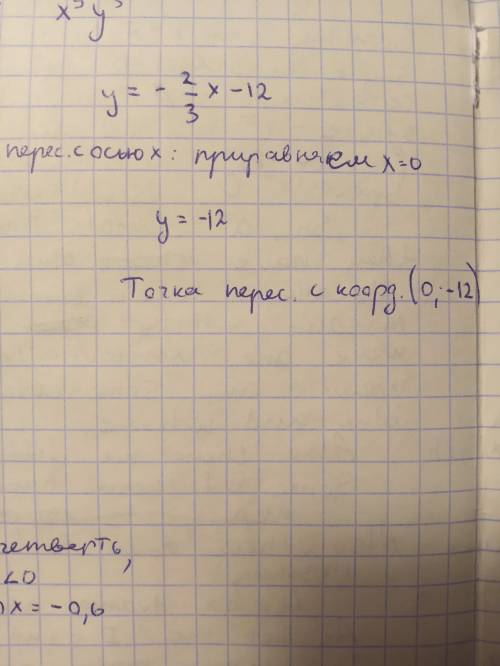 x³y³
y = - 2/3 x - 12
перес. с осью x: приравняем x=0
y = -12
Точка перес. с коорд. (0; -12)
четверть,
<0
x = -0,6